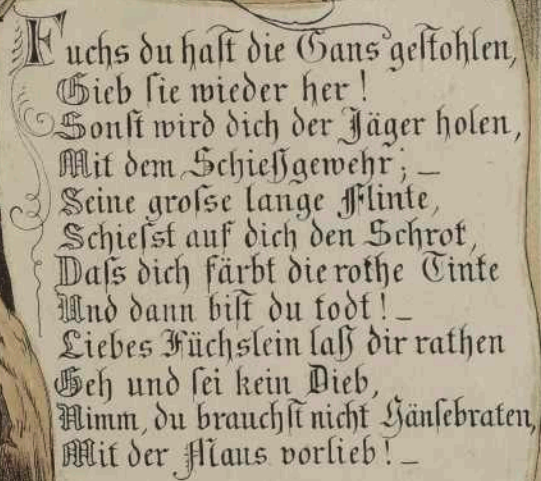 Fuchs du haſt die Gans geſtohlen,
Gieb ſie wieder her!
Sonſt wird dich der Jäger holen,
Mit dem Schieſſgewehr; –
Seine groſse lange Flinte,
Schieſst auf dich den Schrot,
Daſs dich färbt die rothe Tinte
Und dann biſt du todt! –
Liebes Füchslein laſſ dir rathen
Geh und ſei kein Dieb,
Nimm, du brauchſt nicht Gänſebraten,
Mit der Maus vorlieb! –